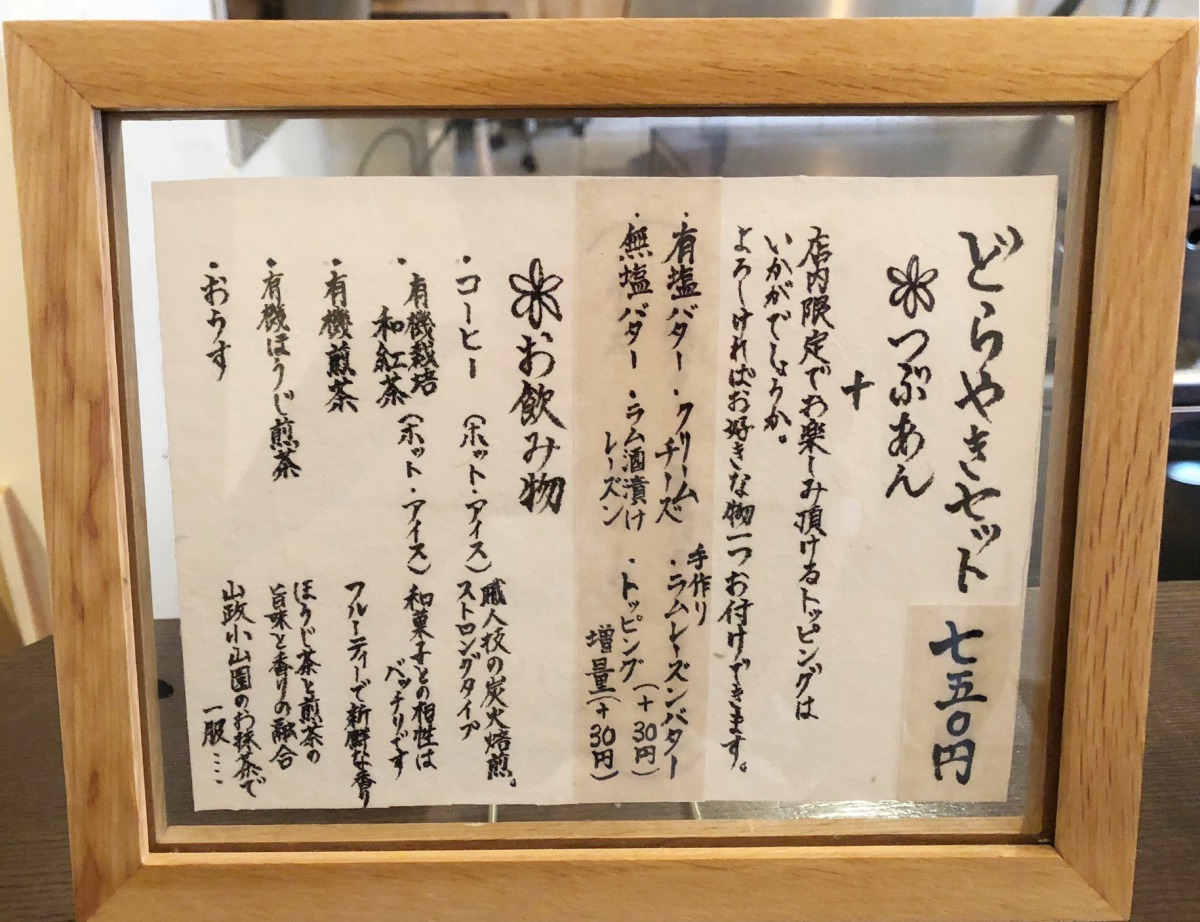 どらやきセット 七五〇円
つぶあん
+
店内限定でお楽しみ頂けるトッピングは
いかがでしょうか。
よろしければお好きな物一つお付けできます。
・有塩バター ・クリームチーズ 手作り・ラムレーズンバター(+30円)
・無塩バター ・ラム酒漬けレーズン ・トッピング増量(+30円)
お飲み物
・コーヒー (ホット・アイス) 職人技の炭火焙煎。
ストロングタイプ
・有機栽培
和紅茶 (ホット・アイス) 和菓子との相性は
バッチリです
・有機煎茶 フルーティーで新鮮な香り
・有機ほうじ煎茶 ほうじ茶と煎茶の
旨味と香りの融合
・おうす 山政小山園のお抹茶で
一服・・・